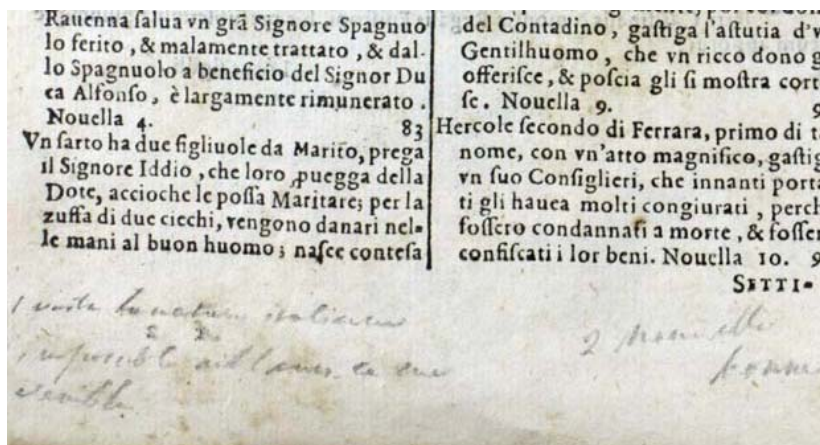 Rauenna ſalua vn grã Signore Spagnuo
lo ferito, & malamente trattato, & dal-
lo Spagnuolo a beneficio del Signor Du
ca Alfonſo, è largamente rimunerato.
Nouella 4. 83
Vn ſarto ha due figliuole da Marito, prega
il Signore Iddio, che loro puegga della
Dote, accioche le poſſa Maritare; per la
zuffa di due ciechi, vengono danari nel-
le mani al buon huomo; naſce conteſa
del Contadino, gaſtiga l'aſtutia d'v
Gentilhuomo, che vn ricco dono g
offeriſce, & poſcia gli ſi moſtra cort
ſe. Nouella 9. 9
Hercole ſecondo di Ferrara, primo di t
nome, con vn'atto magnifico, gaſtig
vn ſuo Conſiglieri, che innanti porta
ti gli hauea molti congiurati, perch
foſſero condannati a morte, & foſſer
confiſcati i lor beni. Nouella 10. 9
SETTI-
la nature italienne
2